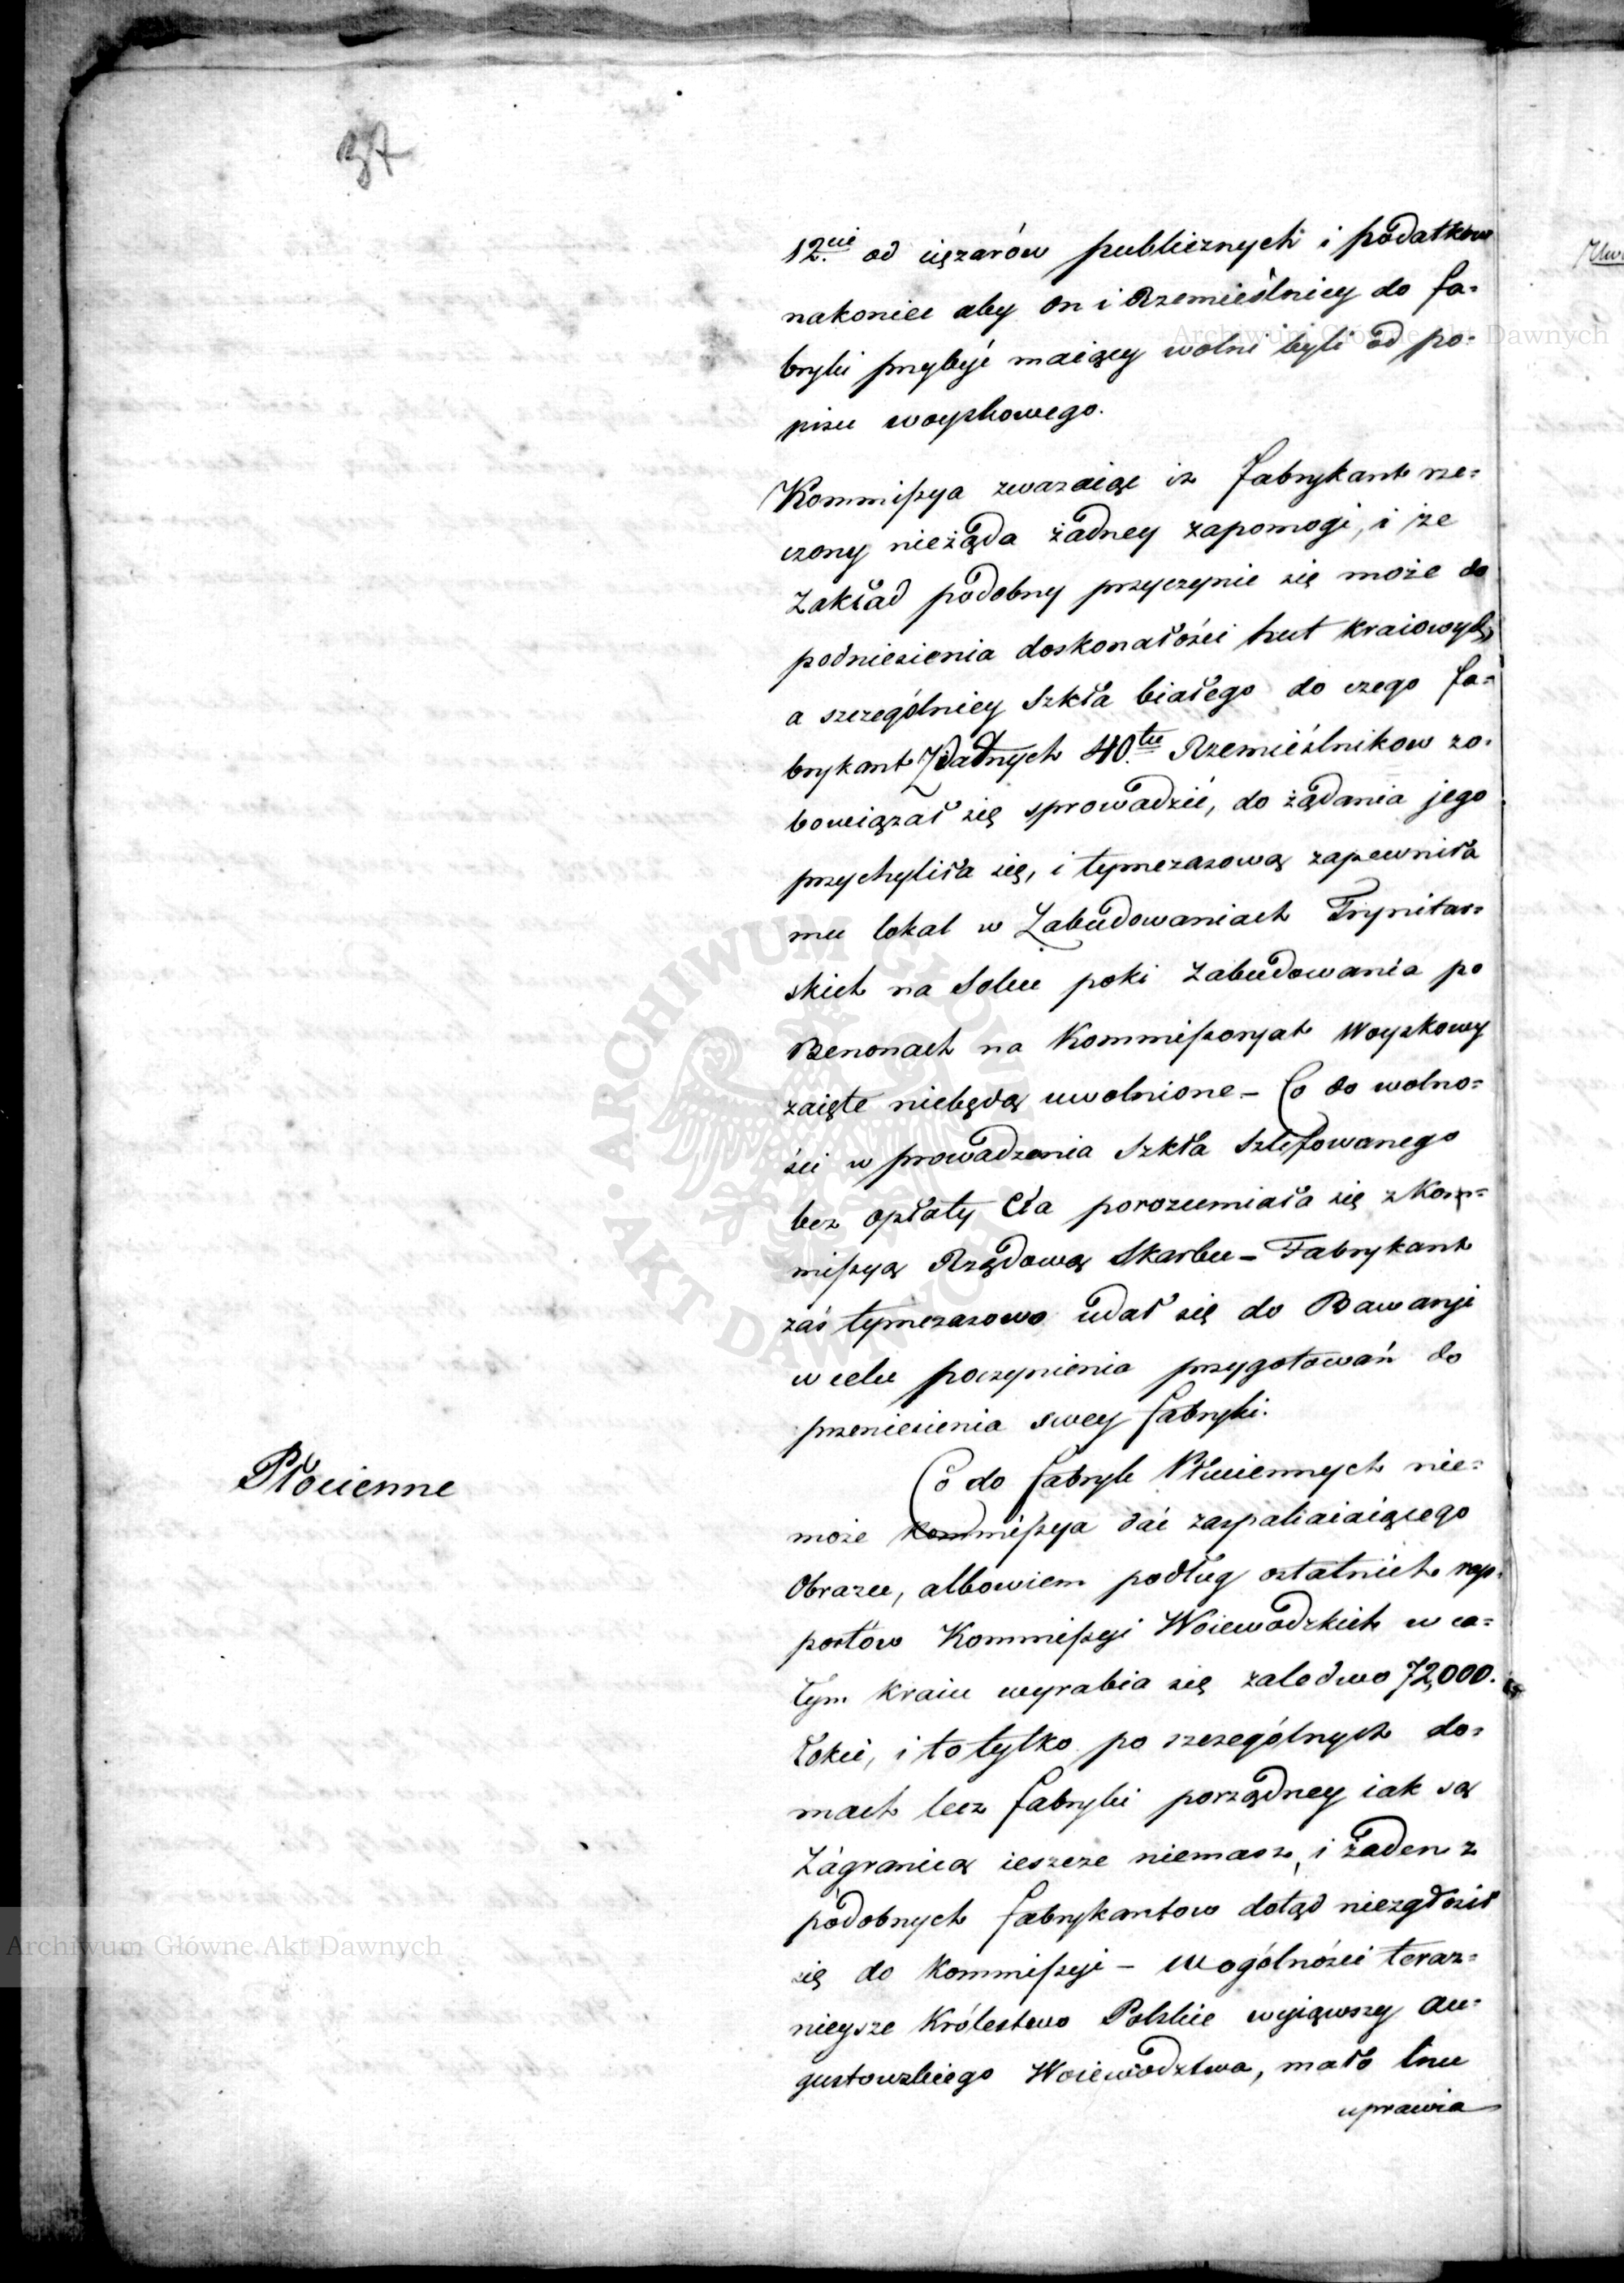 37
12.cie od ciężarów publicznych i podatkow
nakoniec aby on i Rzemieślnicy do fa=
bryki przybyć maiący wolni byli od po=
pisu woyskowego.
Kommissya zważaiąc iz fabrykant rze=
czony nieżąda żadney zapomogi, i że
Zakład podobny przyczynic się może do
podniesienia doskonałości hut kraiowych
a szczególniey Szkła białego do czego fa=
brykant Zdatnych 40.tu Rzemieślnikow zo=
bowiązał się sprowadzić, do żądania jego
przychyliła się, i tymczasową zapewniła
mu lokal w Zabudowaniach Trynitar=
skich na Solcu poki Zabudowania po
Benonach na Kommissoryat Woyskowy
zaięte niebędą uwolnione – Co do wolno=
ści w prowadzenia Szkła Szlifowanego
bez opłaty Cła porozumiała się z Kom=
missyą Rządową Skarbu – Fabrykant
zaś tymczasowo udał się do Bawaryi
w celu poczynienia przygotowań do
przeniesienia swey fabryki.
Płócienne
Co do fabryk Płóciennych nie=
może Kommissya dać zaspakaiaiącego
Obrazu, albowiem podług ostatnich rap=
portow Kommissyi Woiewodzkich w ca=
łym kraiu wyrabia się zaledwo 72,000.
łokci, i to tylko po szczególnych do=
mach lecz fabryki porządney iak są
Zagranicą ieszcze niemasz, i żaden z
podobnych fabrykantow dotąd niezgłosił
się do Kommissyi – W ogólności teraz=
nieysze Królestwo Polskie wyiąwszy Au=
gustowskiego Woiewodztwa, mało lnu
uprawia
Archiwum Główne Akt Dawnych
Archiwum Główne Akt Dawnych
ARCHIWUM GŁÓWNE AKT DAWNYCH